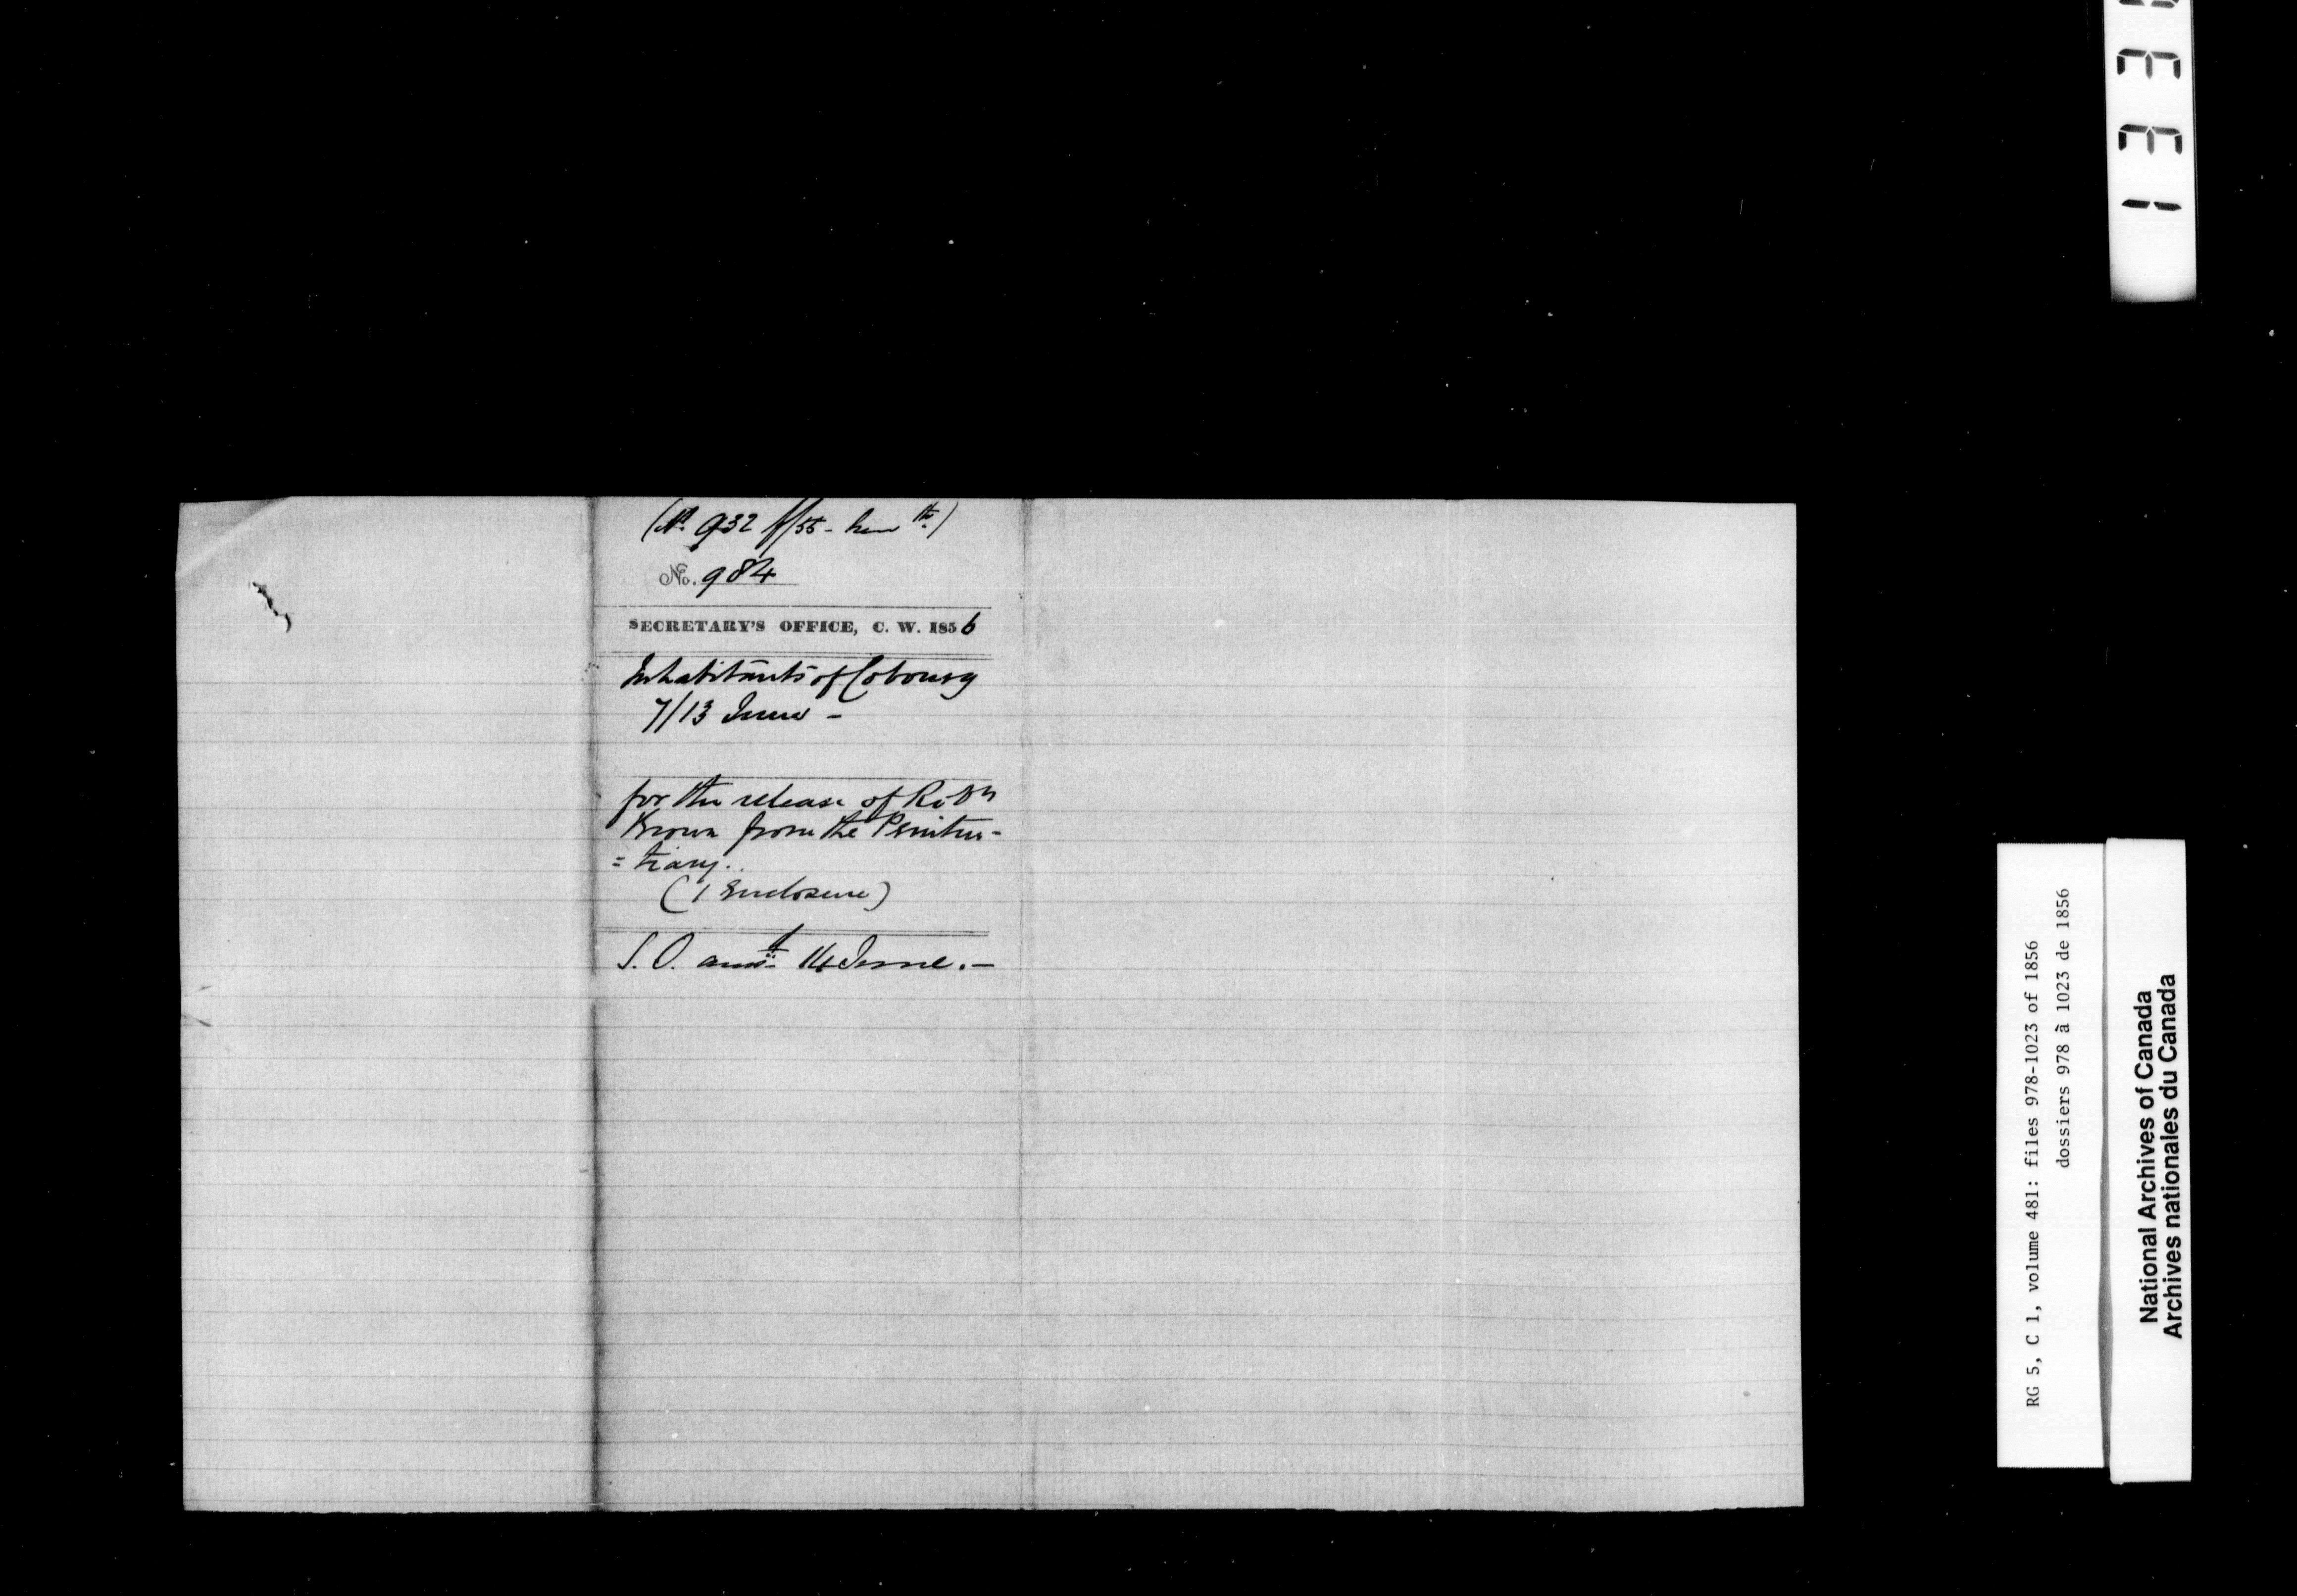 (No. 932 of/55 - herewith)
No. 984
SECRETARY'S OFFICE, C. W. 1856
Inhabitants of Cobourg
7/13 June -
for the release of
Brown from the Peniten-
= tiary.
(1 Enclosure)
S. O. 14 June. -
RG 5, C 1, volume 481: files 978-1023 of 1856
dossiers 978 à 1023 de 1856
National Archives of Canada
Archives nationales du Canada